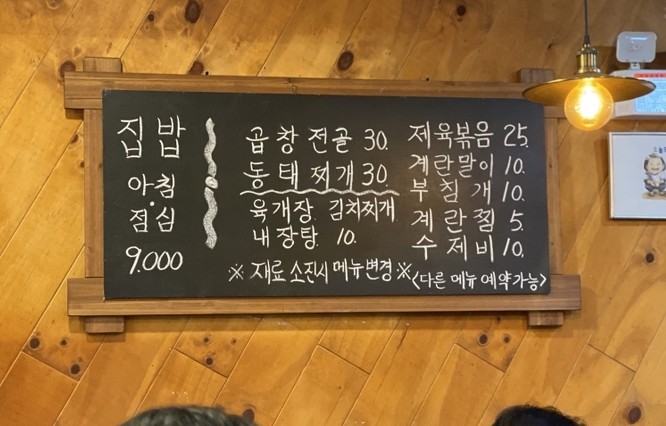 집밥
아침
점심
9.000
곱창전골 30.
동태찌개 30.
육개장 김치찌개
내장탕 10.
제육볶음 25.
계란말이 10.
부침개 10.
계란찜 5.
수제비 10.
※ 재료 소진시 메뉴변경 ※
<다른 메뉴 예약가능>